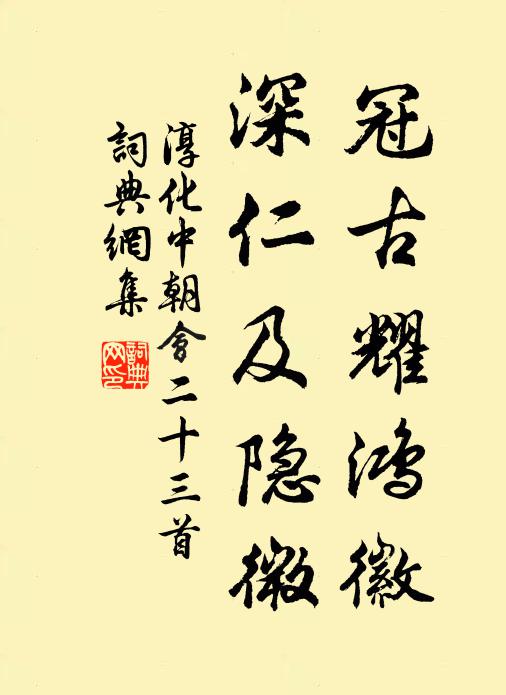 冠古耀鸿徽
深仁及隐微
淳化中朝會二十三首
詞典網集
詞典网印